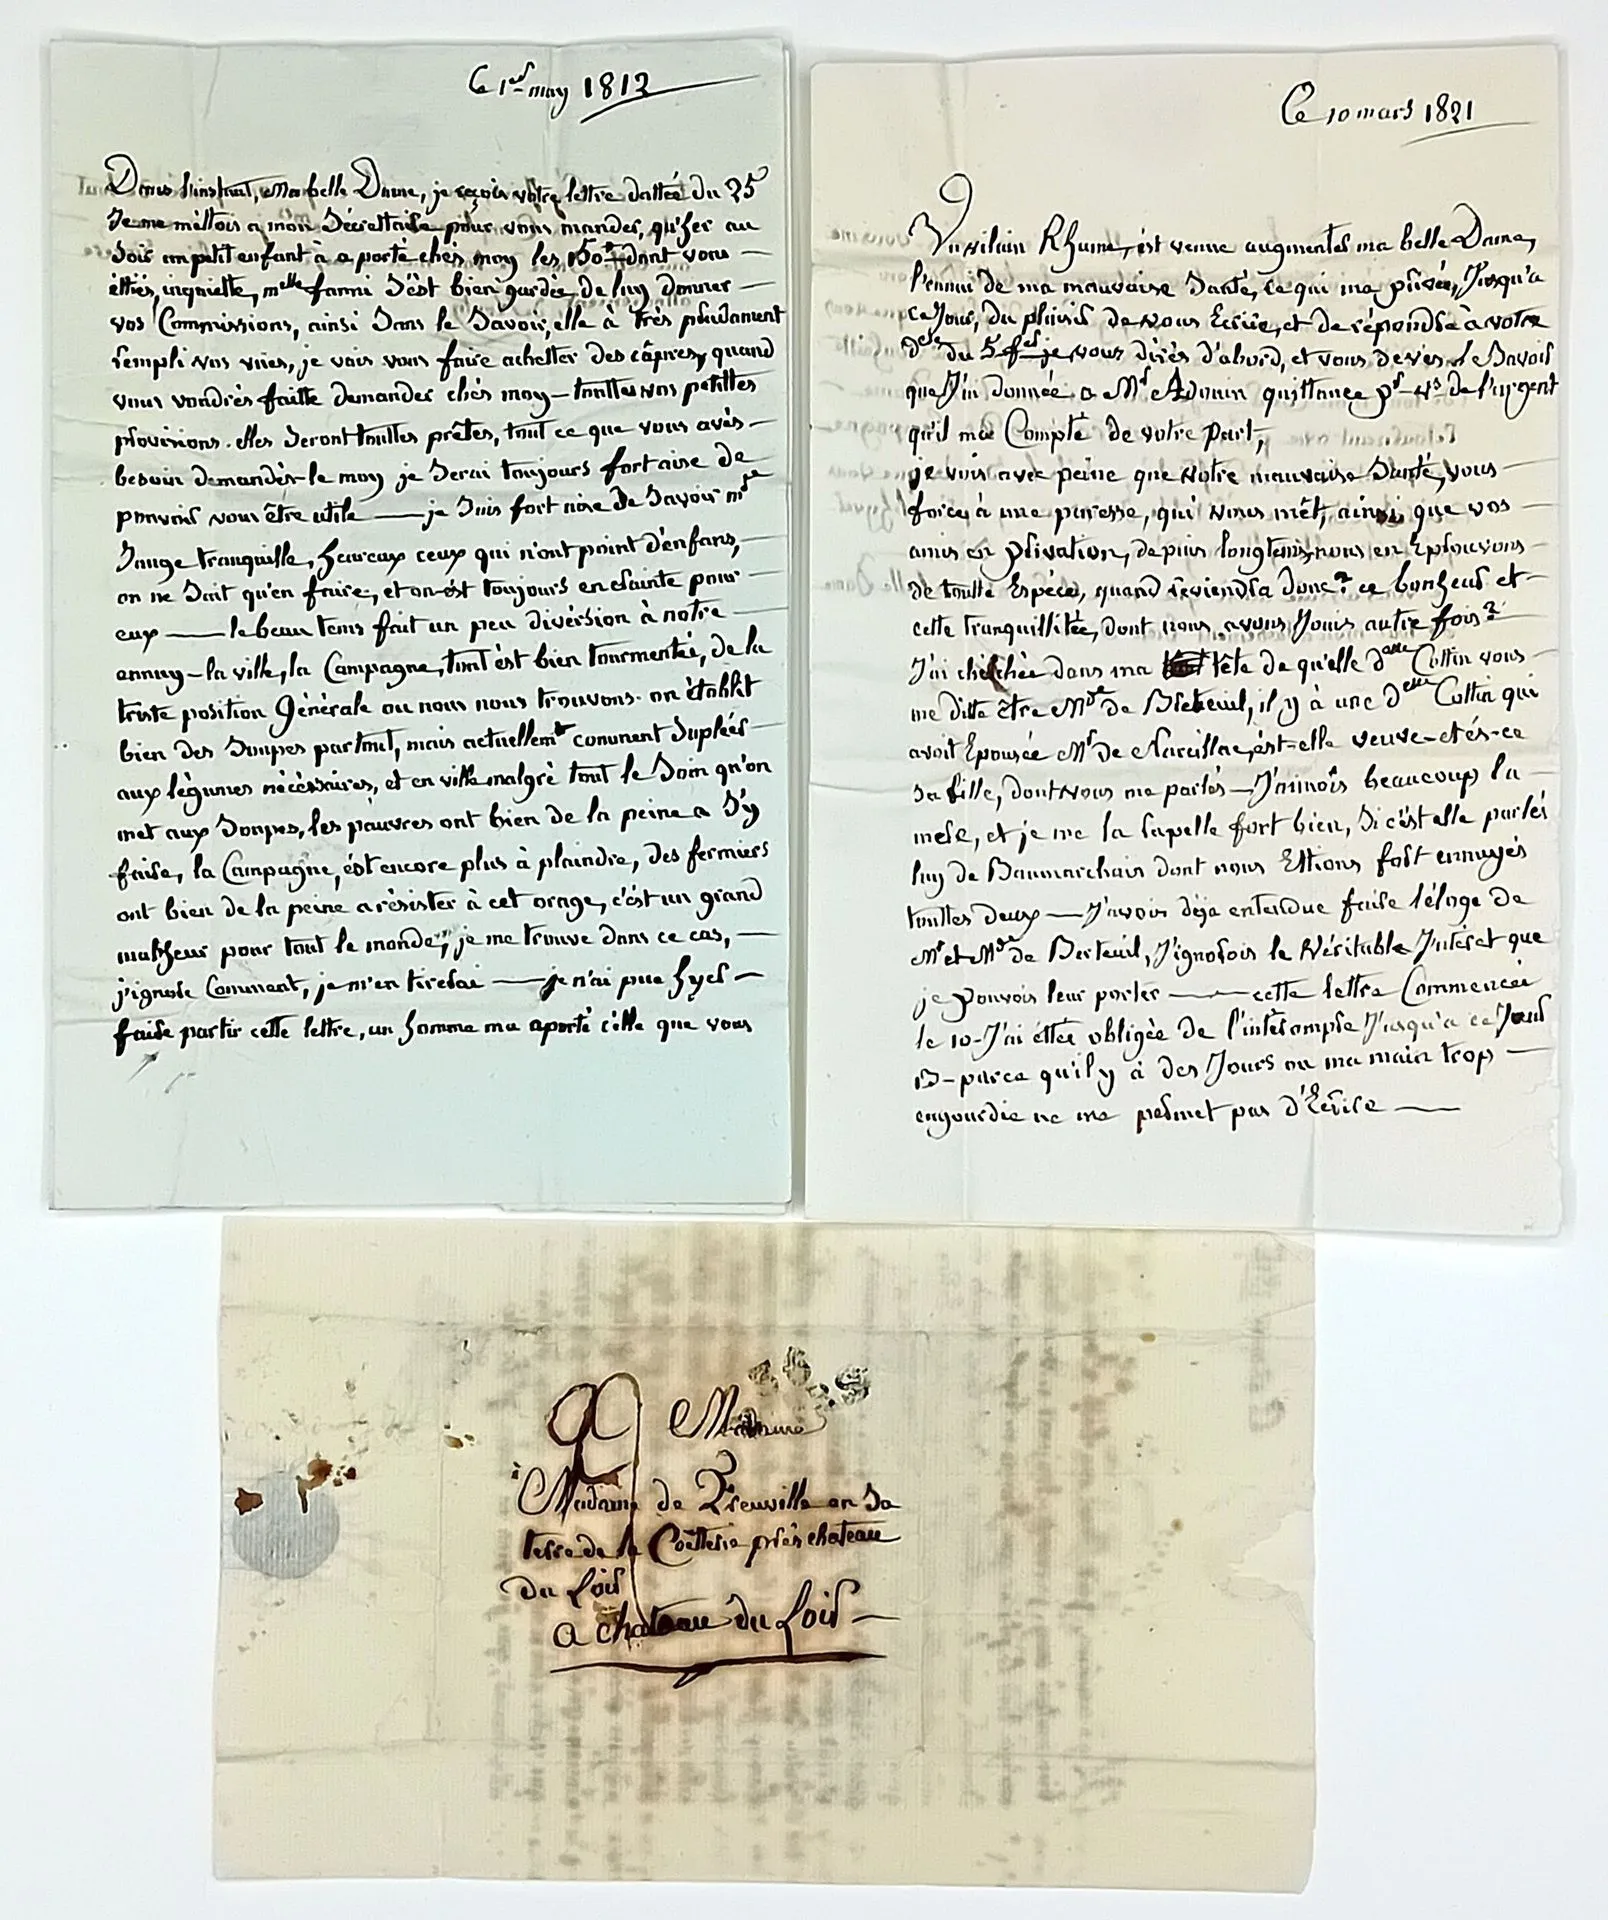 Ce 1er may 1812
Dans l'instant, Ma belle Dame, je reçois votre lettre dattée du 25
Je me mettois a mon Sécrettaire pour vous mander, qu'hier au
Soir un petit enfant à aporté chés moy les 150 dont vous
ettiés, inquiette, melle fanni S'est bien gardée, de luy donner
vos Commissions, ainsi Sans le Savoir, elle à très prudament
rempli vos vües, je vais vous faire achetter des câpres, quand
vous voudrés faitte demander chés moy — touttes vos petittes
provisions. elles Seront touttes prêtes, tout ce que vous avés
besoin demandés-le moy je Serai toujours fort aise de
pouvoir vous être utile — je Suis fort aise de Savoir mde
Sauge tranquille, heureux ceux qui n'ont point d'enfans,
on ne Sait qu'en faire, et on est toujours en crainte pour
eux — le beau tems fait un peu divérsion à notre
ennuy — la ville, la Campagne, tout est bien tourmentée, de la
triste position Générale ou nous nous trouvons. on établit
bien des Soupes partout, mais actuellemt comment Supléer
aux légumes nécéssaires, et en ville malgré tout le Soin qu'on
met aux Soupes, les pauvres ont bien de la peine a S'y
faire, la Campagne, ést encore plus à plaindre, des fermiers
ont bien de la peine a résister à cet orage, c'ést un grand
malheur pour tout le monde, je me trouve dans ce cas,
j'ignore Comment, je m'en tirerai — je n'ai pue hyer
faire partir cette lettre, un homme ma aporté celle que vous
Ce 10 mars 1821
Un vilain Rhume, ést venue augmenter ma belle Dame,
l'ennui de ma mauvaise Santé, ce qui ma privée, Jusqu'a
ce Jour, du plaisir de vous Ecrire, et de répondre à votre
du 5 je vous dirés d'abord, et vous devés le Savoir
que J'ai donnée a Mr Adouin quittance pr de l'argent
qu'il ma Compté de votre part,
je vois avec peine que votre mauvaise Santé, vous
force à une paresse, qui vous mét, ainsi que vos
amis en privation, depuis longtems nous en Eprouvons
de toutte Espéce, quand reviendra donc? ce bonheur et
cette tranquillitée, dont nous avons Jouis autre fois?
J'ai cherchée dans ma tête de qu'elle delle Cottin vous
me ditte être Mde de Breteuil, il y à une delle Cottin qui
avoit Epousée Mr de Nareillac, ést-elle veuve et és-ce
Sa fille, dont vous me parlés — J'aimois beaucoup la
mere, et je me la rapelle fort bien, Si c'ést elle parlés
luy de Baumarchais dont nous Ettions fort ennuyés
touttes deux — J'avois déja entendue faire l'éloge de
Mr et Mde de Berteuil, J'ignorois le véritable J'ntéret que
je pouvois leur porter — cette lettre Commencée
le 10 — J'ai éttée obligée de l'intérompre Jusqu'a ce Jour
13 — parce qu'il y à des Jours ou ma main trop
engourdie ne me permet pas d'Ecrire —
A Madame
Madame de Freuville en Sa
terre de la Coëtterie près chateau
du Loir
a chateau du Loir